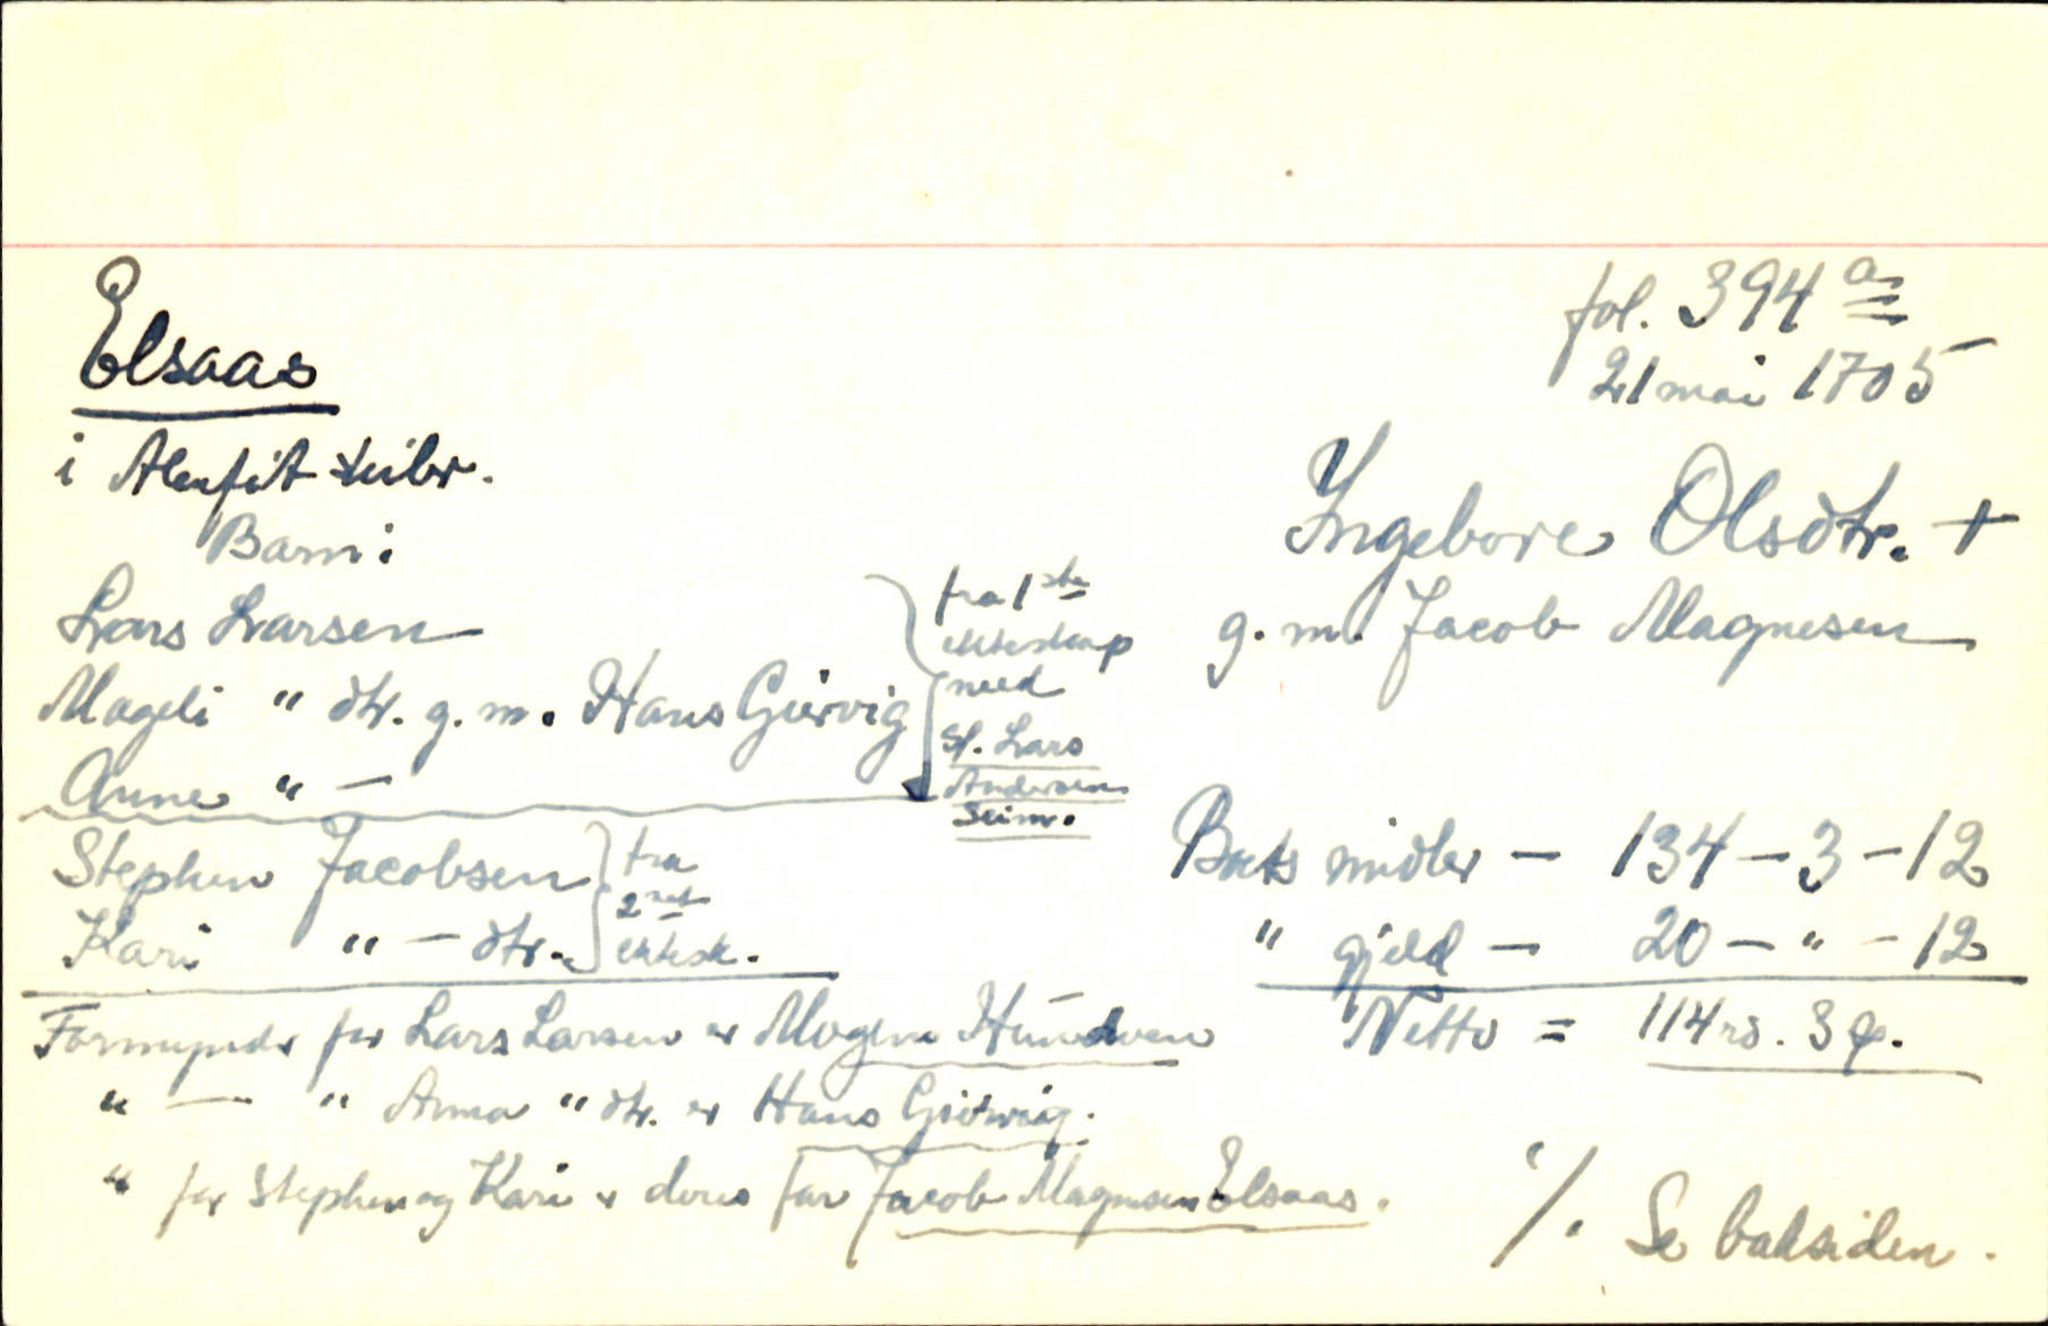 Elsaas
i Alenfit skibr.
Barn:
Lars Larsen
Mageli " dtr. g. m. Hans Giervig
Anne " —
fra 1ste
ekteskap
med
Sl. Lars
Andersen
Seim.
Stephen Jacobsen
Kari " — dtr.
fra
2net
ektesk.
fol. 394 a
21 mai 1705
Ingebore Olsdtr. +
g. m. Jacob Magnesen
Boets midler — 134 — 3 — 12
" gjeld — 20 — " — 12
Netto = 114 rs. 3 q.
Formynder for Lars Larsen er Mogens Hundven
" — " Anna " dtr. er Hans Giervig.
" for Stephen og Kari er deres far Jacob Magnesen Elsaas.
·/. Se baksiden.